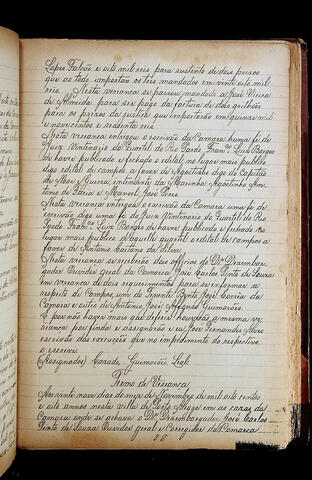 Lopes Falcão e oito mil reis para sustento de dois prezos
que ao todo importão os tres mandados em vinte oito mil
reis. Nesta vereanca se passou mandado a José Vieira
de Almeida para ser pago da factura de dois grilhões
para os prezos da justiça que importarão em quinze mil
e novecentos e sessenta reis.
Nesta vereança entregou o escrivão da Camara huma fé do
Juiz Vintenario do Quartel do Rio Pardo Franco Luiz Borges
de haver publicado e fechado o edital no lugar mais publico
digo edital de campos a favor de Agostinho digo do Capitão
de Mar e Guerra, intendente da Marinha Agostinho Antonio
de Faria e Manoel José Pires
Nesta vereança entregou o escrivão da Camara uma fé do
escrivão digo uma fé do Juiz Vintenario do Quartel do Rio
Pardo Franco Luiz Borges de haver publicado e fechado no
lugar mais publico d'aquelle quartel o edital de campos a
favor de Antonio Caetano da Silva.
Nesta vereança se receberão dos officios do Dr. Dezembar-
gador Ouvidor geral da Comarca José Carlos Pinto de Souza
em vereança de dois requerimentos para se informar a
respeito de Campos, um do Tenente Bento José Corrêa da
Camara e outro de Antonio José Azevedo Guimarães.
E por não haver mais que deferir houverão a mesma ve-
reança por finda e assignarão e eu José Fernandes Alves
escrivão das execuções que no impedimento do respectivo
o escrevi
(Assignados) Corado, Guimarães, Leal
Termo de Vereança
Aos vinte nove dias do mez de Novembro de mil oito centos
e oito annos nesta villa de Porto Alegre em as cazas da
Camara onde se achava o Dr. Dezembargador José Carlos
Pinto de Souza Ouvidor geral e Corregedor da Comarca
92